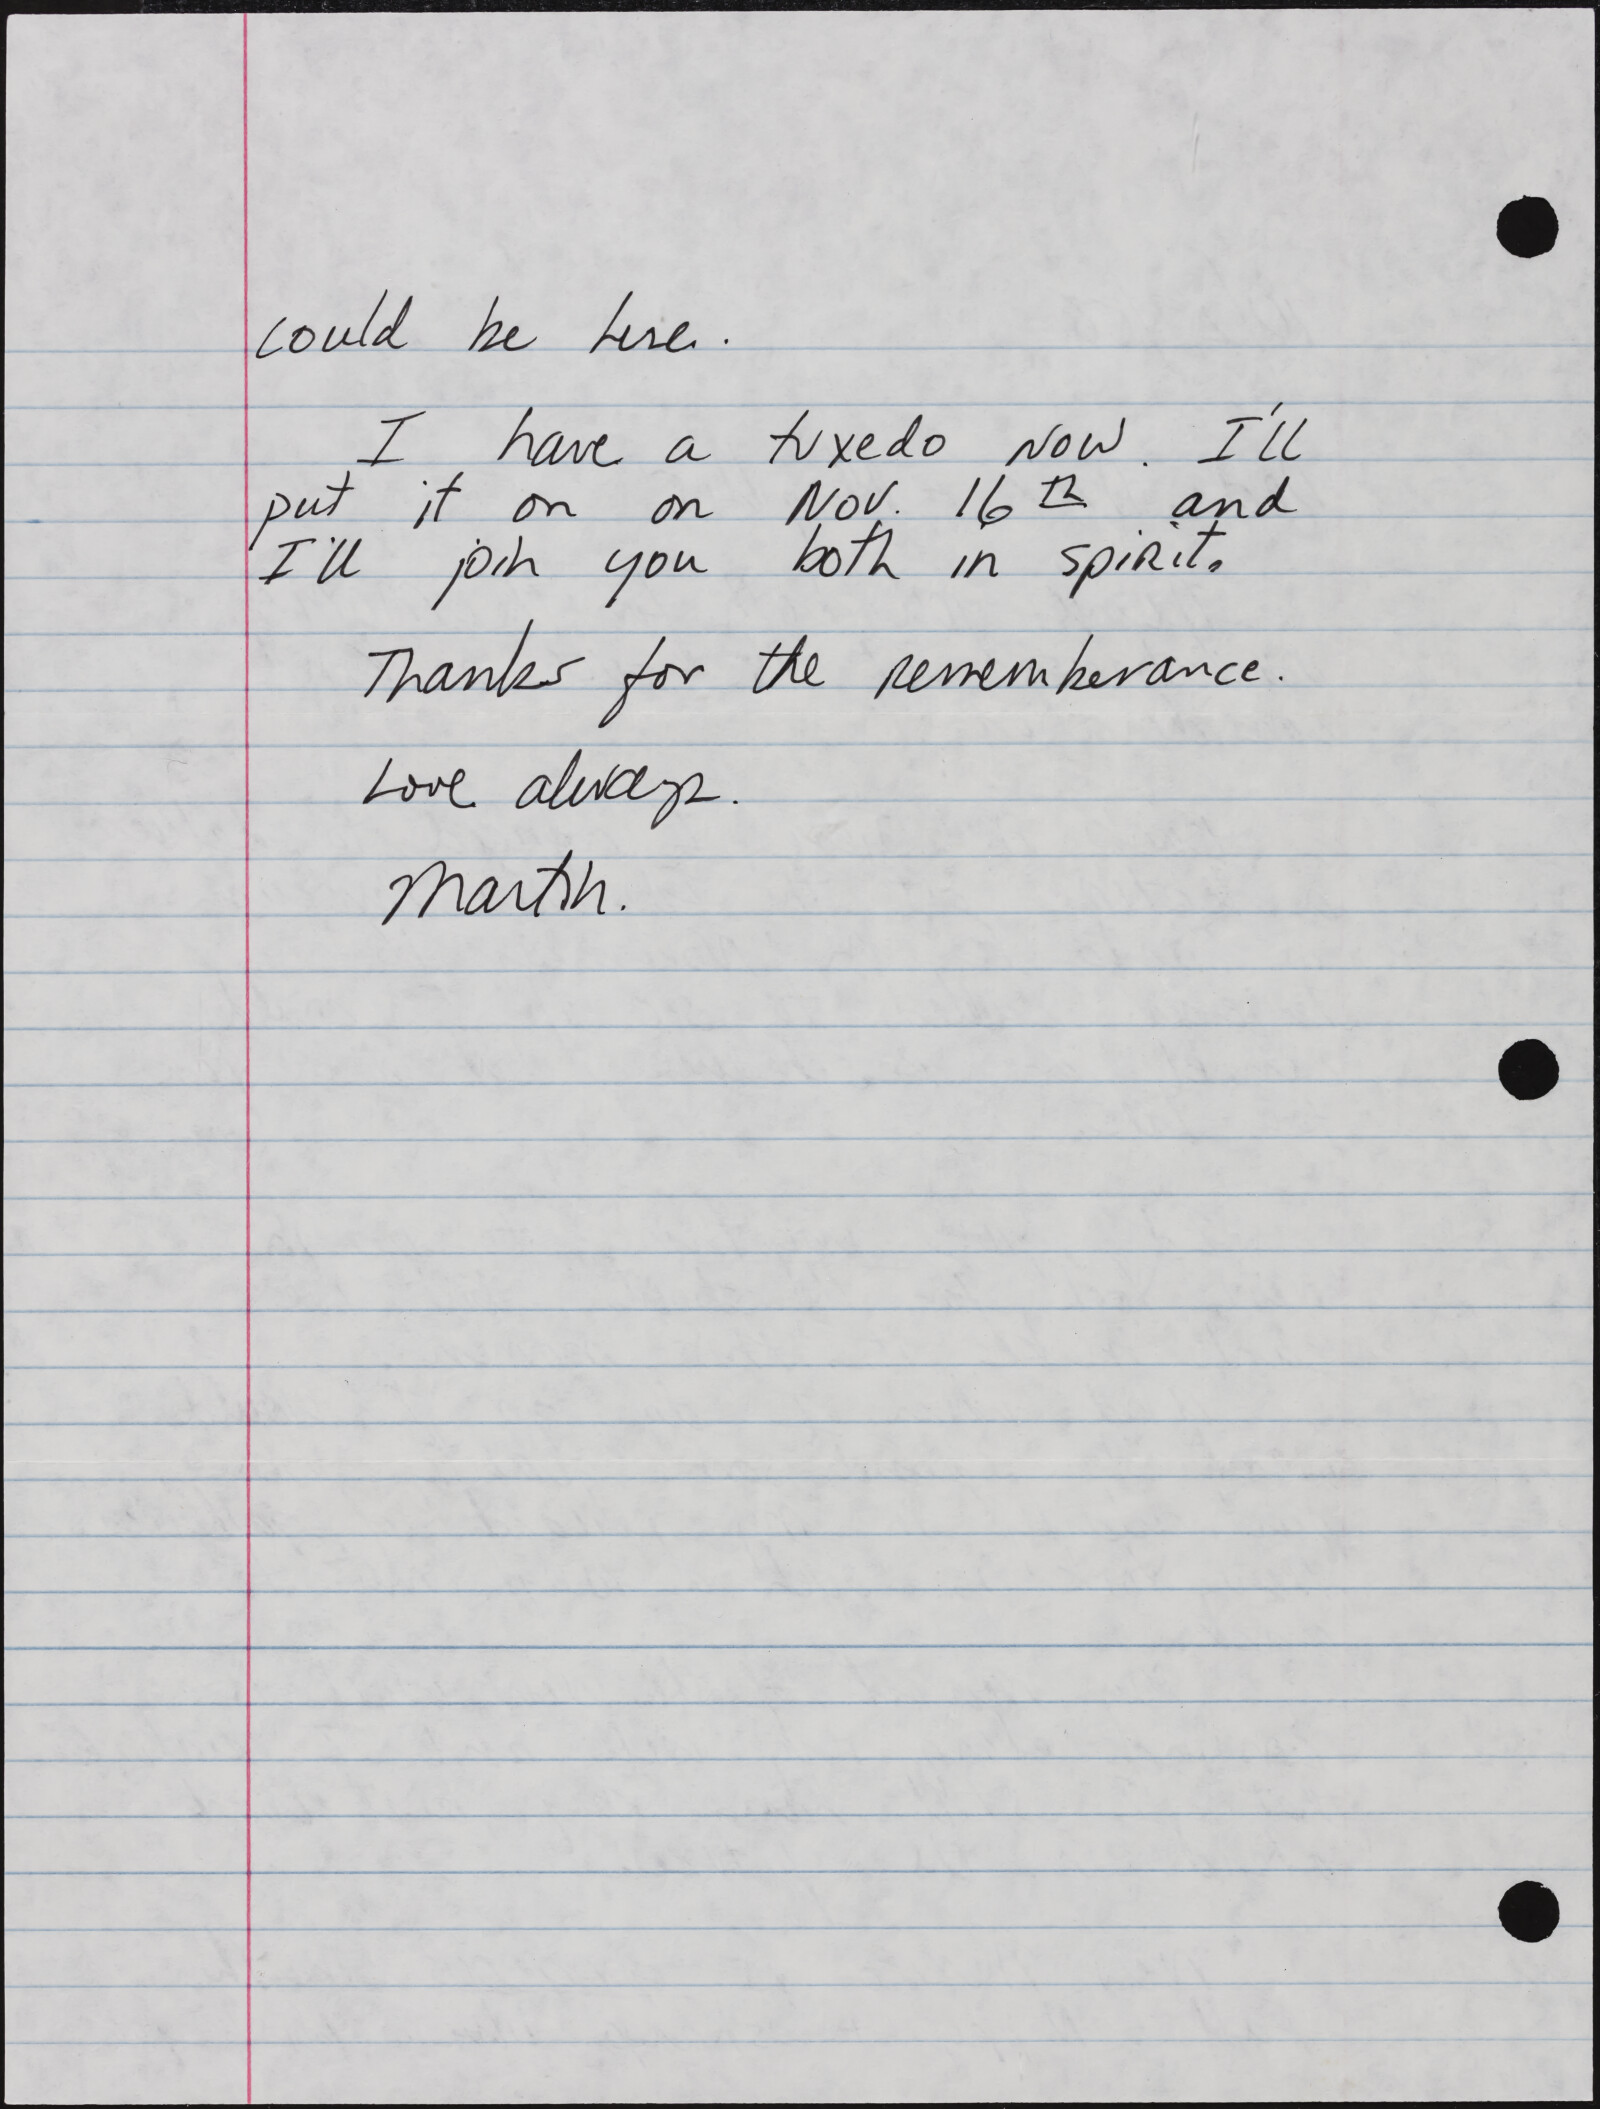 could be here.
I have a tuxedo now. I'll
put it on on Nov. 16th and
I'll join you both in spirit.
Thanks for the rememberance.
Love always.
Martin.